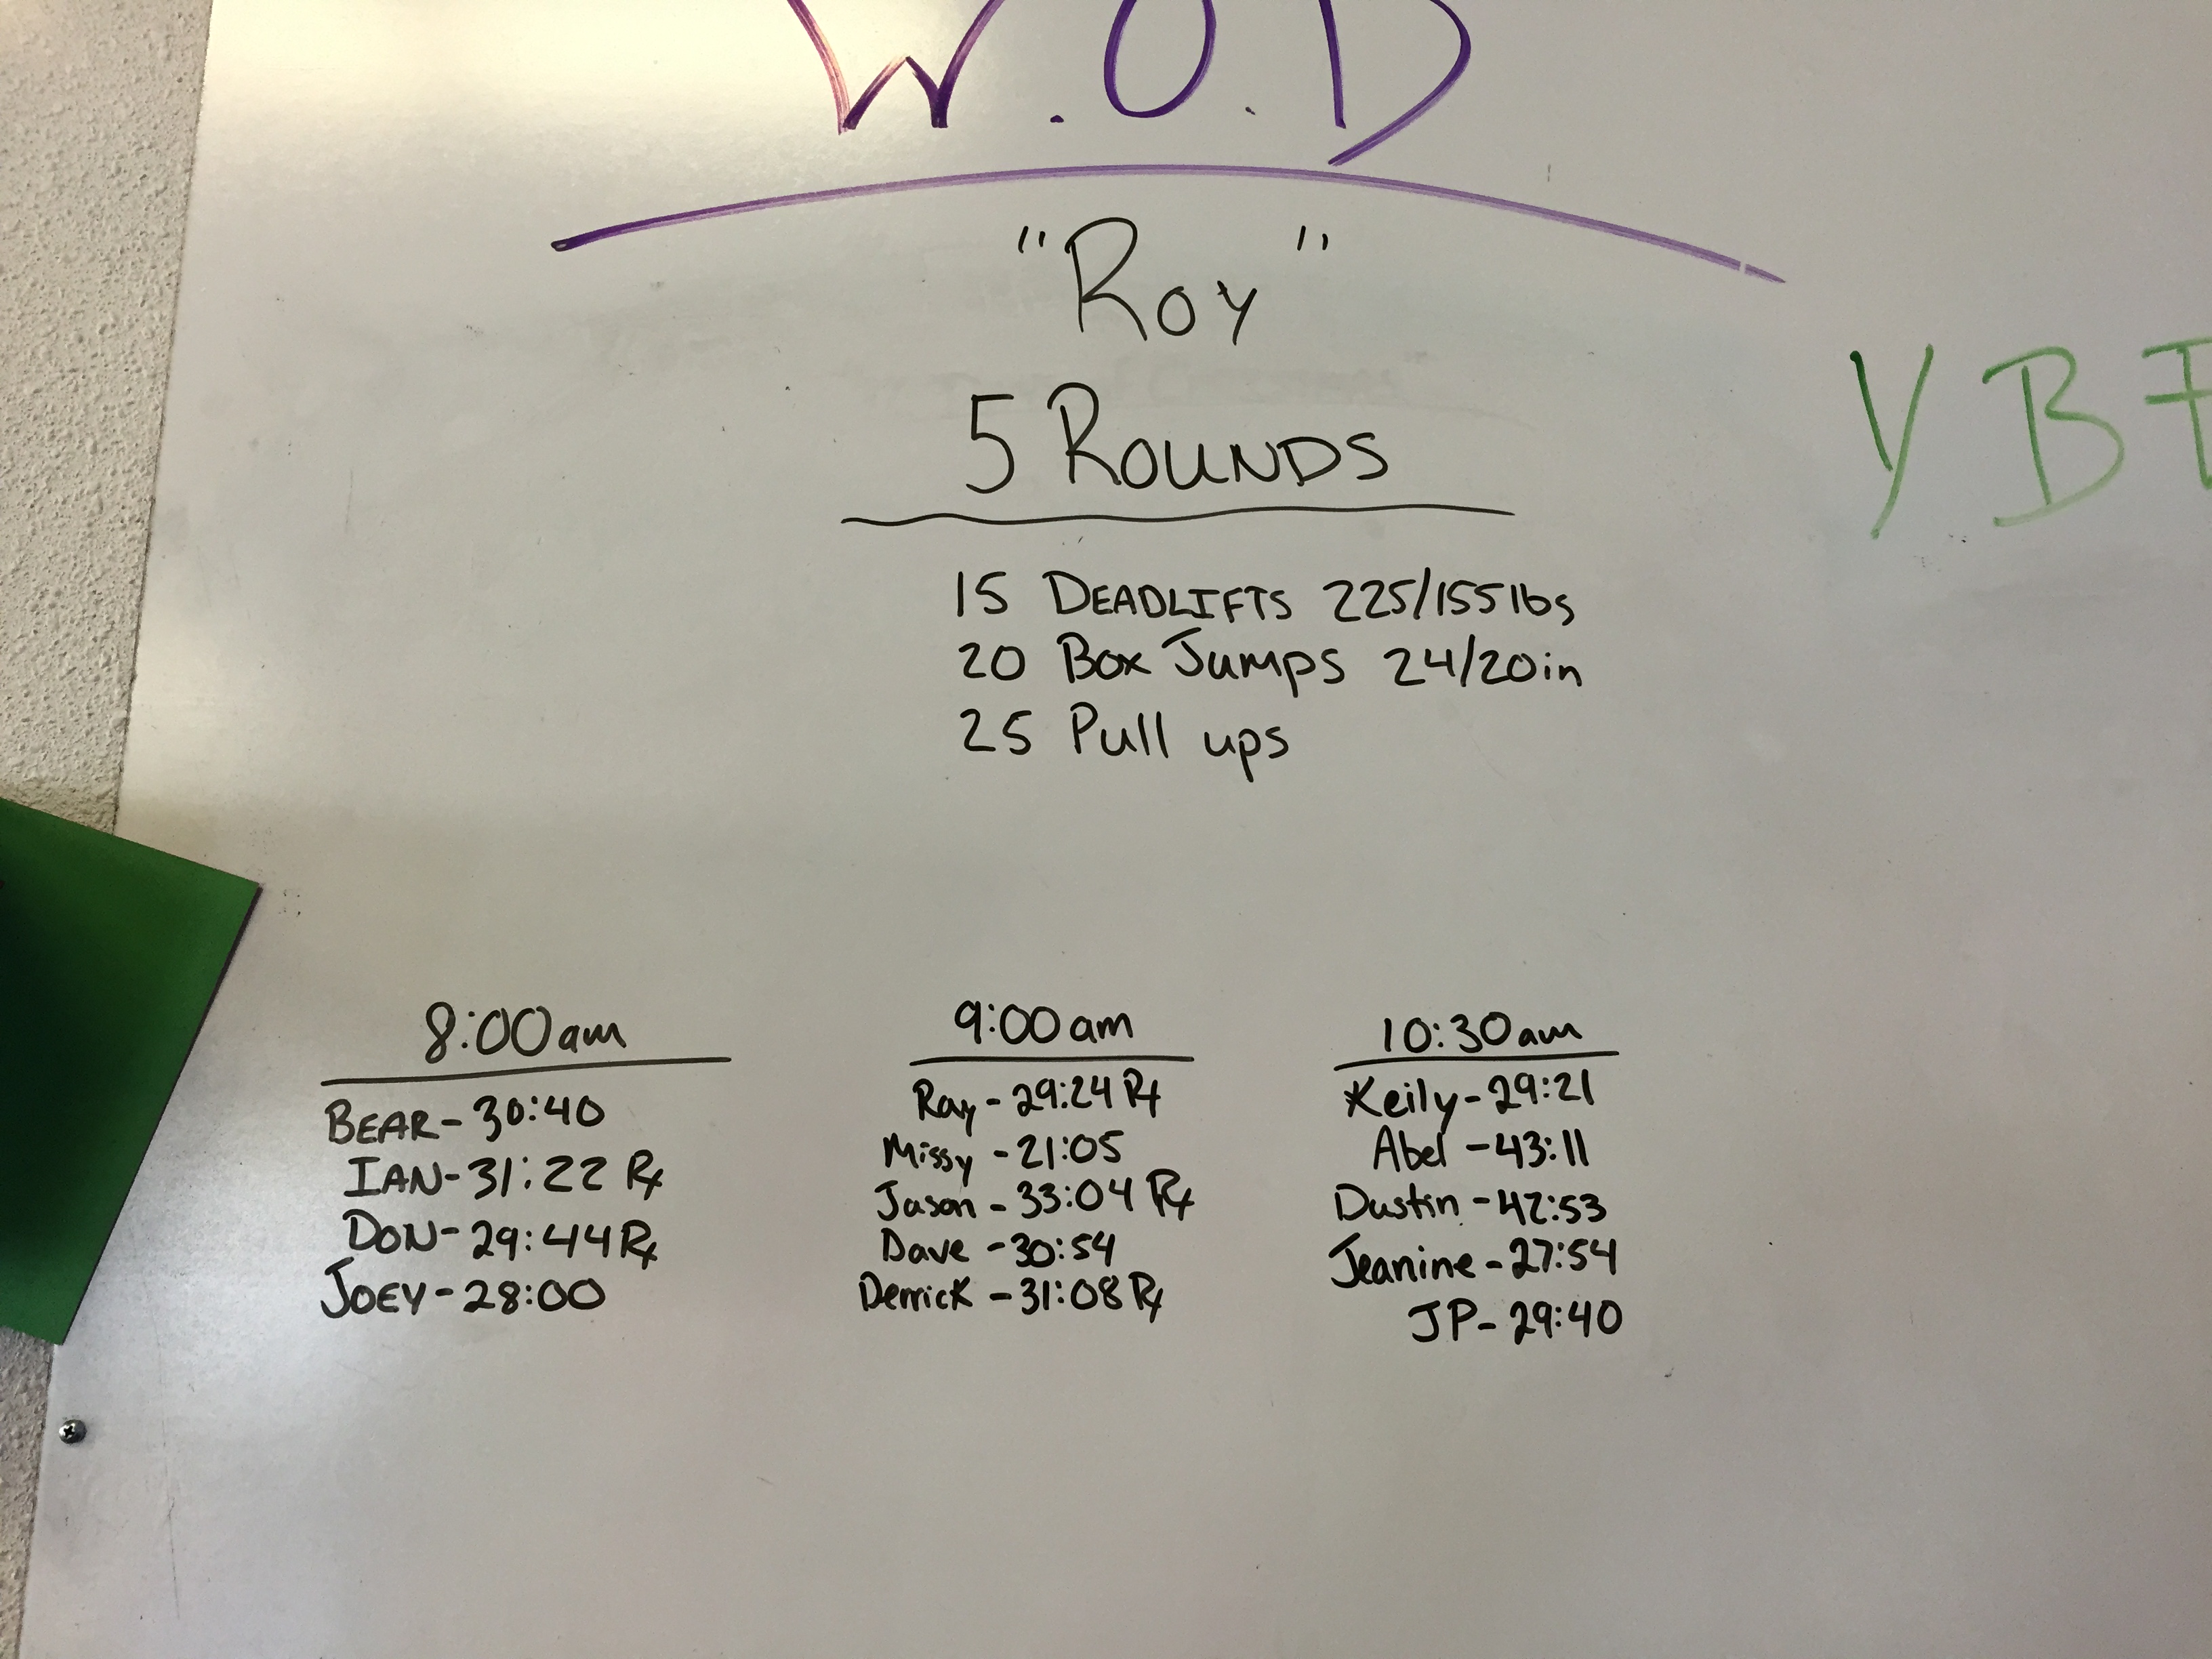 W.O.D
"Roy"
5 ROUNDS
15 DEADLIFTS 225/155lbs
20 Box Jumps 24/20in
25 Pull ups
Y B
8:00am
BEAR-30:40
IAN-31:22 Rx
DON-29:44 Rx
JOEY-28:00
9:00am
Ray-29:24 Rx
Missy-21:05
Jason-33:04 Rx
Dave-30:54
Derrick-31:08 Rx
10:30am
Keily-29:21
Abel-43:11
Dustin-42:53
Jeanine-27:54
JP-29:40